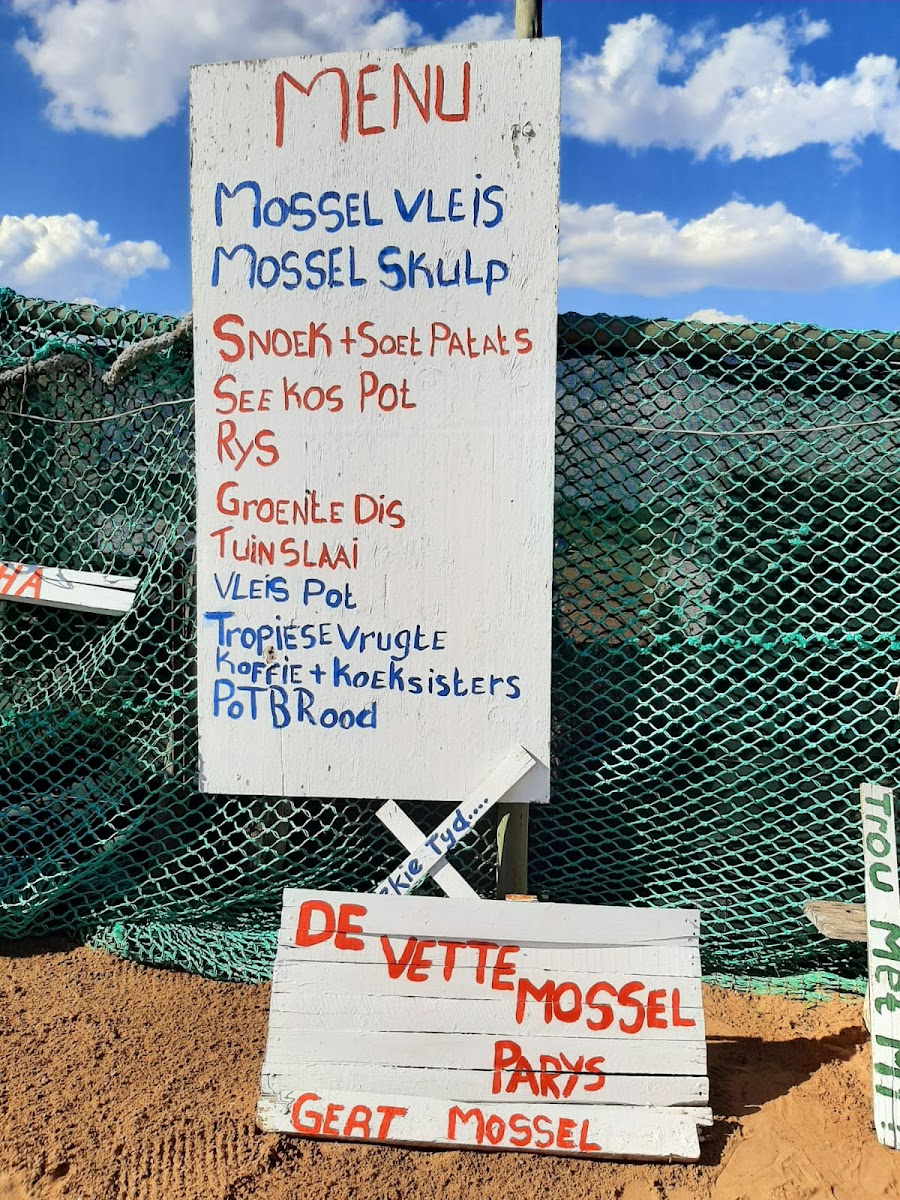 MENU
MOSSEL VLEIS
MOSSEL SKULP
SNOEK + SOET PATATS
SEEKOS POT
RYS
GROENTE DIS
TUINSLAAI
VLEIS POT
TROPIESE VRUGTE
KOFFIE + KOEKSISTERS
POTBROOD
Tyd....
DE VETTE MOSSEL
PARYS
GERT MOSSEL
HA
Trou Met Mi!